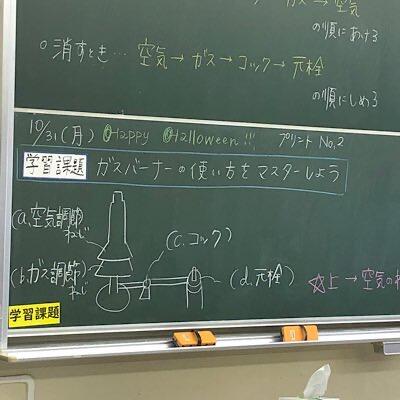 ガス→空気
の順にあける
○消すとき…空気→ガス→コック→元栓
の順にしめる
10/31(月) Happy Halloween!!! プリントNo.2
学習課題 ガスバーナーの使い方をマスターしよう
(a.空気調節ねじ)
(c.コック)
(b.ガス調節ねじ)
(d.元栓)
☆上→空気の
学習課題